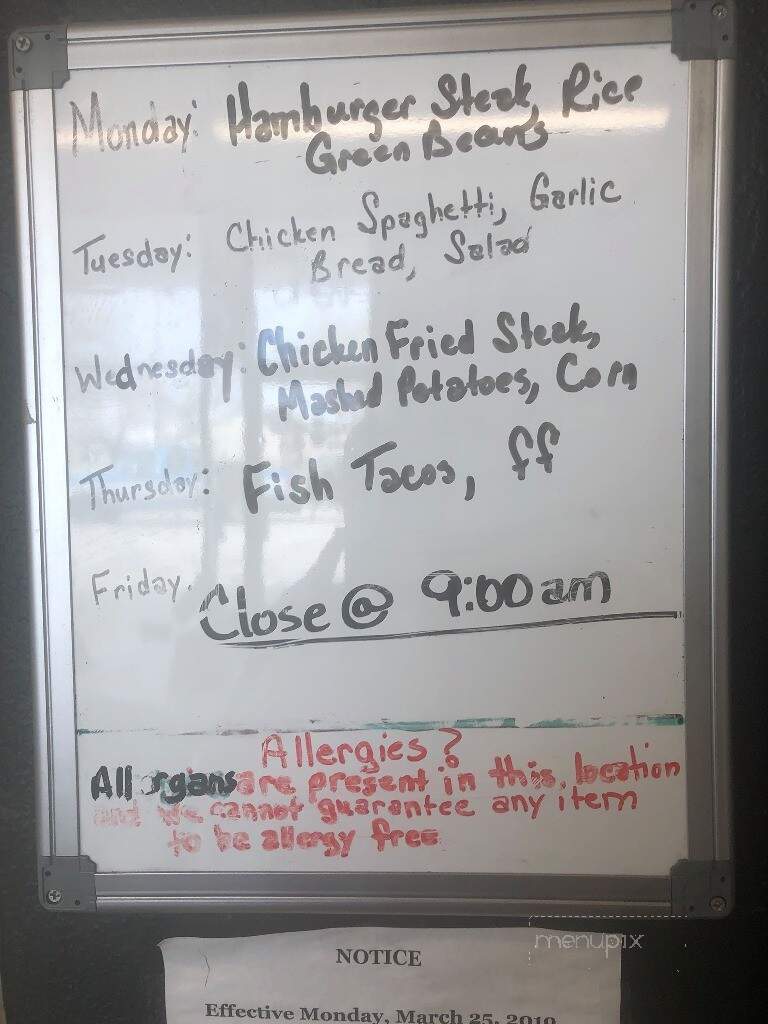 Monday: Hamburger Steak, Rice
Green Beans
Tuesday: Chicken Spaghetti, Garlic
Bread, Salad
Wednesday: Chicken Fried Steak,
Mashed Potatoes, Corn
Thursday: Fish Tacos, ff
Friday. Close @ 9:00 am
Allergies?
All rgans are present in this location
and we cannot guarantee any item
to be allergy free
menupix
NOTICE
Effective Monday, March 25, 2019